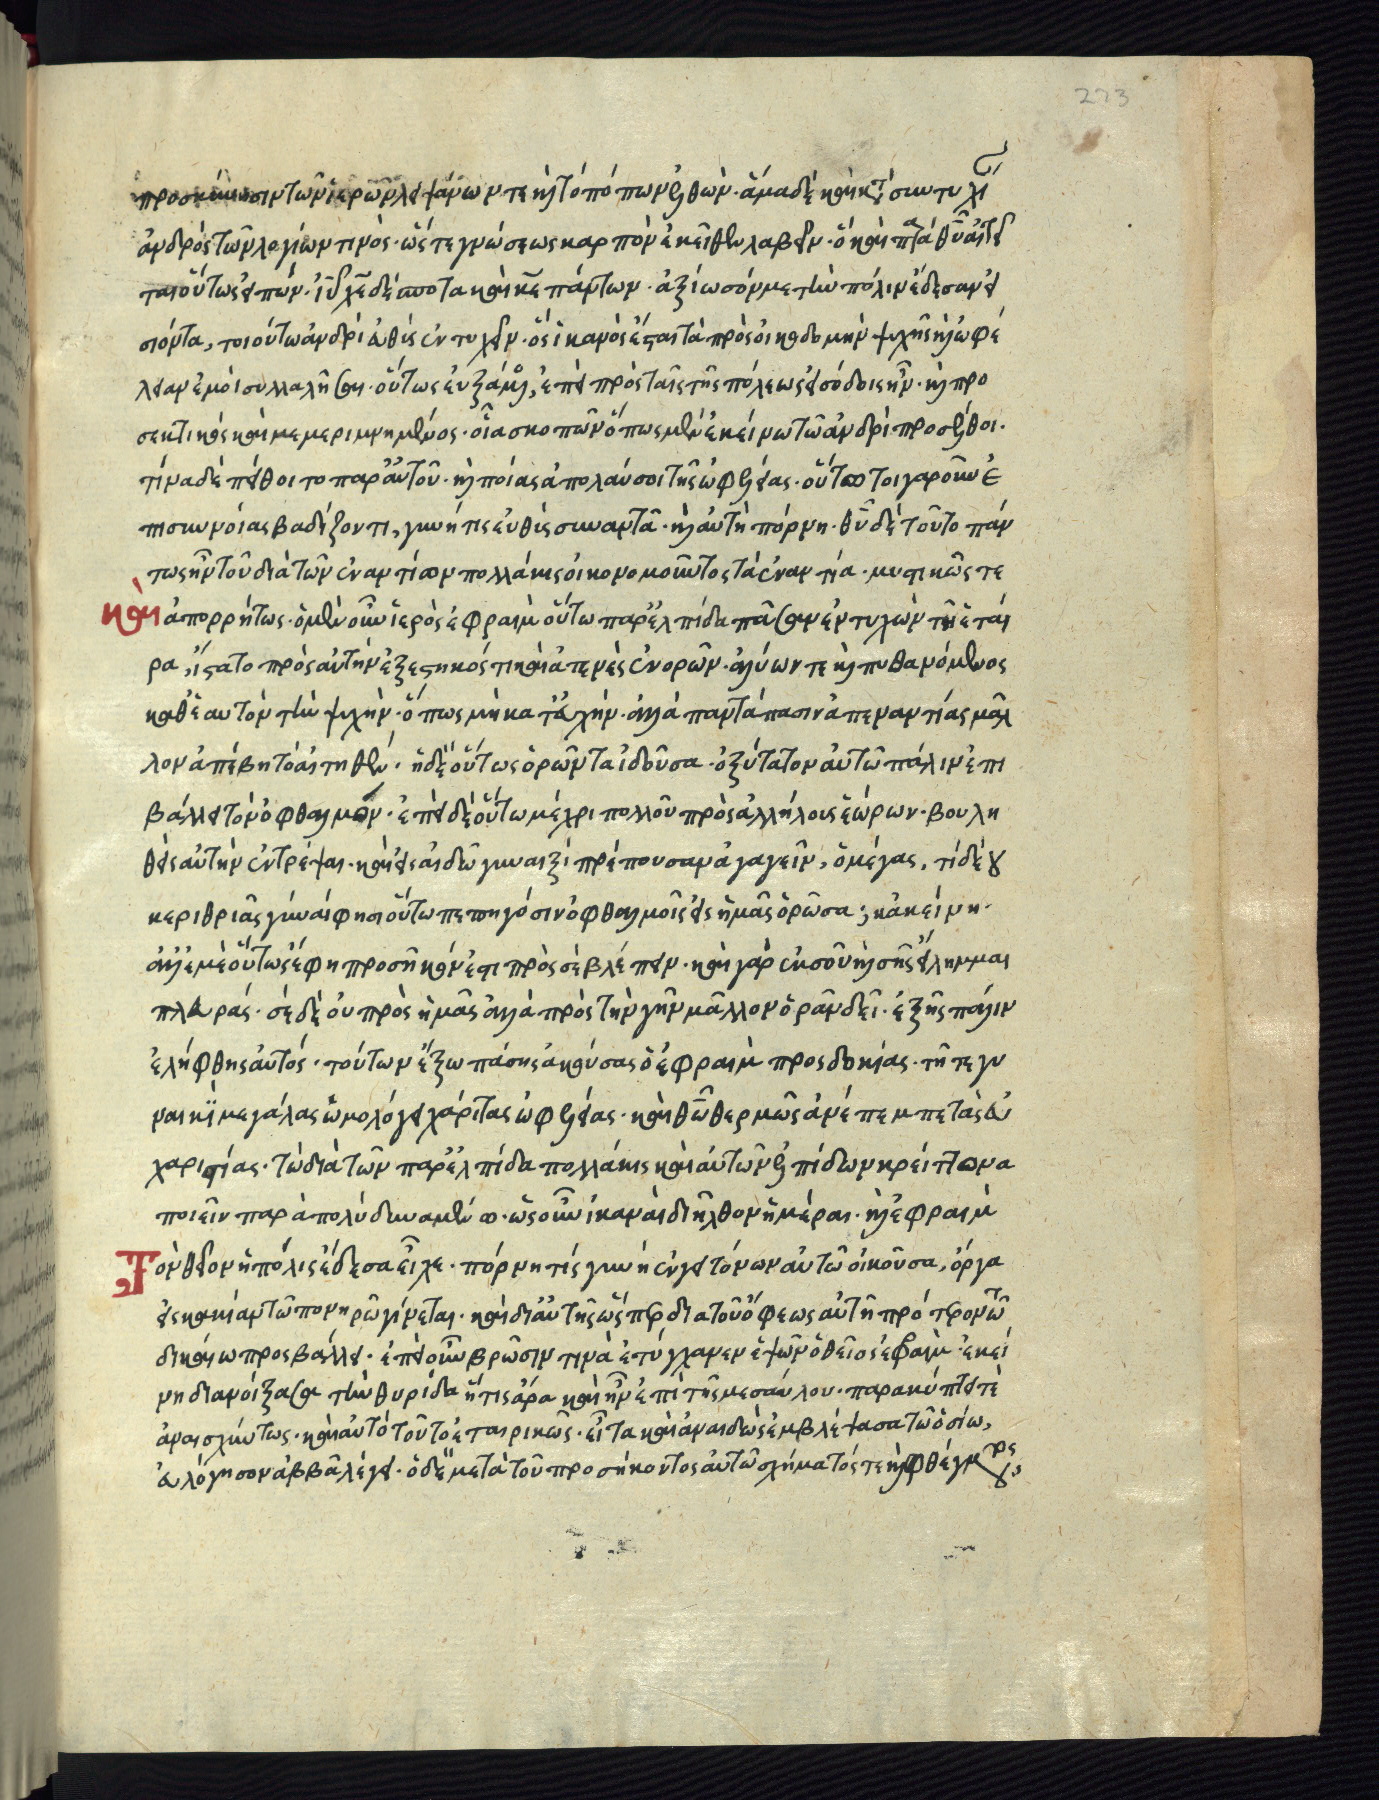 273
προσκύνησιν τῶν ἱερῶν λειψάνων τε καὶ τόπων ἐλθὼν· ἅμα δὲ καὶ κατὰ συντυχίαν
ἀνδρὸς τῶν λογίων τινὸς· ὥστε γνώσεως καρπὸν ἐκεῖθεν λαβεῖν· ὃ καὶ παρὰ θῦ αἰτεῖ
ται οὕτως εἰπών· ἰῦ χὲ δέσποτα καὶ κε πάντων· ἀξίωσόν με τὴν πόλιν ἔδεσαν εἰ
σιόντα, τοιούτω ἀνδρὶ εὐθὺς ἐντυχεῖν· ὃς ἱκανὸς ἔσται τὰ πρὸς οἰκοδομὴν ψυχῆς καὶ ὠφέ
λειαν ἐμοὶ συλλαλῆσαι· οὕτως εὐξάμενος, ἐπεὶ πρὸς ταῖς τῆς πόλεως εἰσόδοις ἦν· καὶ προ
σεκτικὸς καὶ μεμεριμνημένος· οἷα σκοπῶν ὅπως μὲν ἐκείνω τῶ ἀνδρὶ προσέλθοι·
τίνα δὲ πείθοιτο παρ' αὐτοῦ· καὶ ποίας ἀπολαύσοι τῆς ὠφελείας· οὕτω τοιγαροῦν ἐ
πισυννοίας βαδίζοντι, γυνή τις εὐθὺς συναντᾶ· καὶ αὐτὴ πόρνη· θῦ δὲ τοῦτο πάν
τως ἦν τοῦ διὰ τῶν ἐναντίων πολλάκις οἰκονομοῦντος τὰ ἐναντία· μυστικῶς τε
καὶ ἀπορρήτως· ὁ μὲν οὖν ἱερὸς ἐφραὶμ οὕτω παρ' ἐλπίδα πᾶσαν ἐντυχὼν τῆ ἑταί
ρα, ἵστατο πρὸς αὐτὴν ἐξεστηκότι καὶ ἀτενὲς ἐνορῶν· ἀλύων τε καὶ πυθανόμενος
καθ' ἑαυτὸν τὴν ψυχὴν· ὅπως μὴ κατ' εὐχὴν· ἀλλὰ παντάπασιν ἀπεναντίας μᾶλ
λον ἀπέβη τὸ αἰτηθέν· ἡ δὲ οὕτως ὁρῶντα ἰδοῦσα· ὀξύτατον αὐτῶ πάλιν ἐπι
βάλλει τὸν ὀφθαλμὸν· ἐπεὶ δὲ οὕτω μέχρι πολλοῦ πρὸς ἀλλήλους ἑώρων· βουλη
θεὶς αὐτὴν ἐντρέψαι· καὶ εἰς αἰδῶ γυναιξὶ πρέπουσαν ἀγαγεῖν, ὁ μέγας, τί δὲ οὐ
κ ἐρυθριᾶς γύναι φησὶ οὕτω πεπηγόσιν ὀφθαλμοῖς εἰς ἡμᾶς ὁρῶσα; κἀκείνη·
ἀλλ' ἐμὲ οὕτως ἔφη προσῆκόν ἐστι πρὸς σὲ βλέπειν· καὶ γὰρ ἐκ σοῦ καὶ σῆς εἴλημμαι
πλευρᾶς· σὲ δὲ οὐ πρὸς ἡμᾶς ἀλλὰ πρὸς τὴν γῆν μᾶλλον ὁρᾶν δεῖ· ἐξ ἧς πάλιν
ἐλήφθης αὐτός· τούτων ἔξω πάσης ἀκούσας ὁ ἐφραὶμ προσδοκίας· τῆ τε γυ
ναικὶ μεγάλας ὡμολόγει χάριτας ὠφελείας· καὶ θῶ θερμῶς ἀνέπεμπε τὰς εὐ
χαριστίας· τῶ διὰ τῶν παρ' ἐλπίδα πολλάκις καὶ αὐτῶν ἐλπίδων κρείττωνα
ποιεῖν παρὰ πολὺ δυναμένω· ὡς οὖν ἱκαναὶ διῆλθον ἡμέραι· καὶ ἐφραὶμ
Τὸν θεῖον ἡ πόλις ἔδεσα εἶχε· πόρνη τίς γυνὴ ἐν γειτόνων αὐτῶ οἰκοῦσα, ὄργα
εἰς κακίαν τῶ πονηρῶ γίνεται· καὶ δι' αὐτῆς ὥσπερ διὰ τοῦ ὄφεως αὐτῆ πρότερον τῶ
δικαίω προσβάλλει· ἐπεὶ οὖν βρῶσιν τινὰ ἐτύγχανεν ἕψων ὁ θεῖος ἐφραὶμ· ἐκεί
νη διανοίξασα τὴν θυρίδα ἥτις ἄρα καὶ ἦν ἐπὶ τῆς μεσαύλου· παρακύπτει τὲ
ἀναισχύντως· καὶ αὐτὸ τοῦτο ἑταιρικῶς· εἶτα καὶ ἀναιδῶς ἐμβλέψασα τῶ ὁσίω,
εὐλόγησον ἀββᾶ λέγει· ὁ δὲ μετὰ τοῦ προσήκοντος αὐτῶ σχήματός τε καὶ φθέγματος